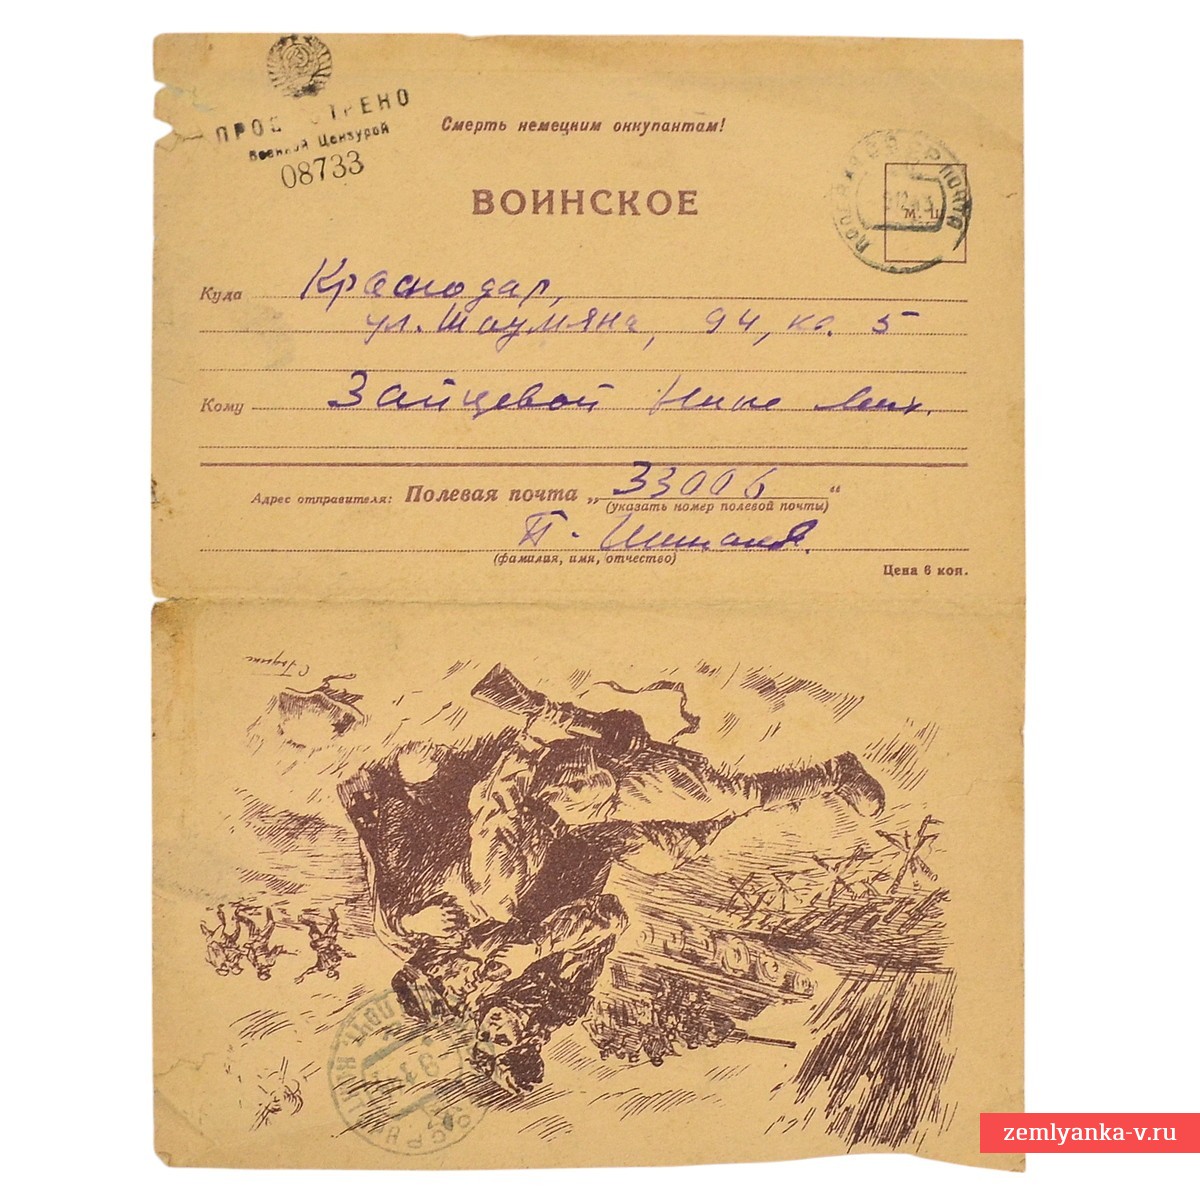 ПРОСМОТРЕНО
Военной Цензурой
08733
Смерть немецким оккупантам!
ВОИНСКОЕ
ПОЛЕВАЯ ПОЧТА
М.
Куда Краснодар,
ул. Шаумяна, 94, кв. 5
Кому Зайцевой Нине Мих.
Адрес отправителя: Полевая почта „33006“
(указать номер полевой почты)
П.
(фамилия, имя, отчество)
Цена 6 коп.
zemlyanka-v.ru